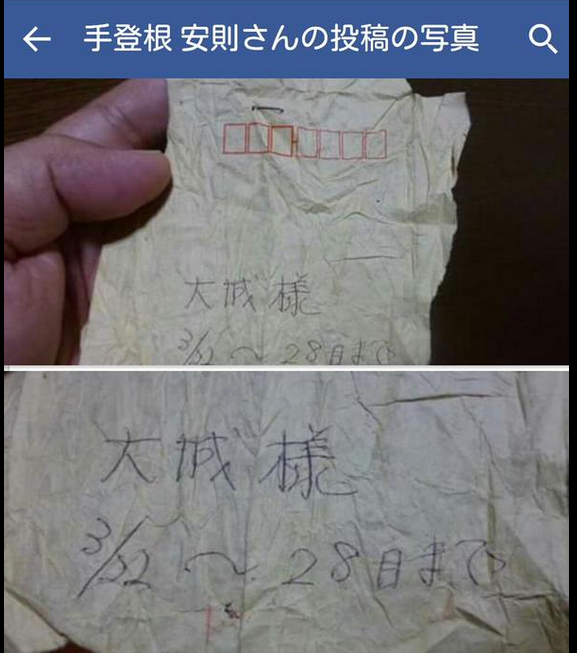 手登根 安則さんの投稿の写真
大城 様
3/22 ～ 28日まで
大城 様
3/22 ～ 28日まで